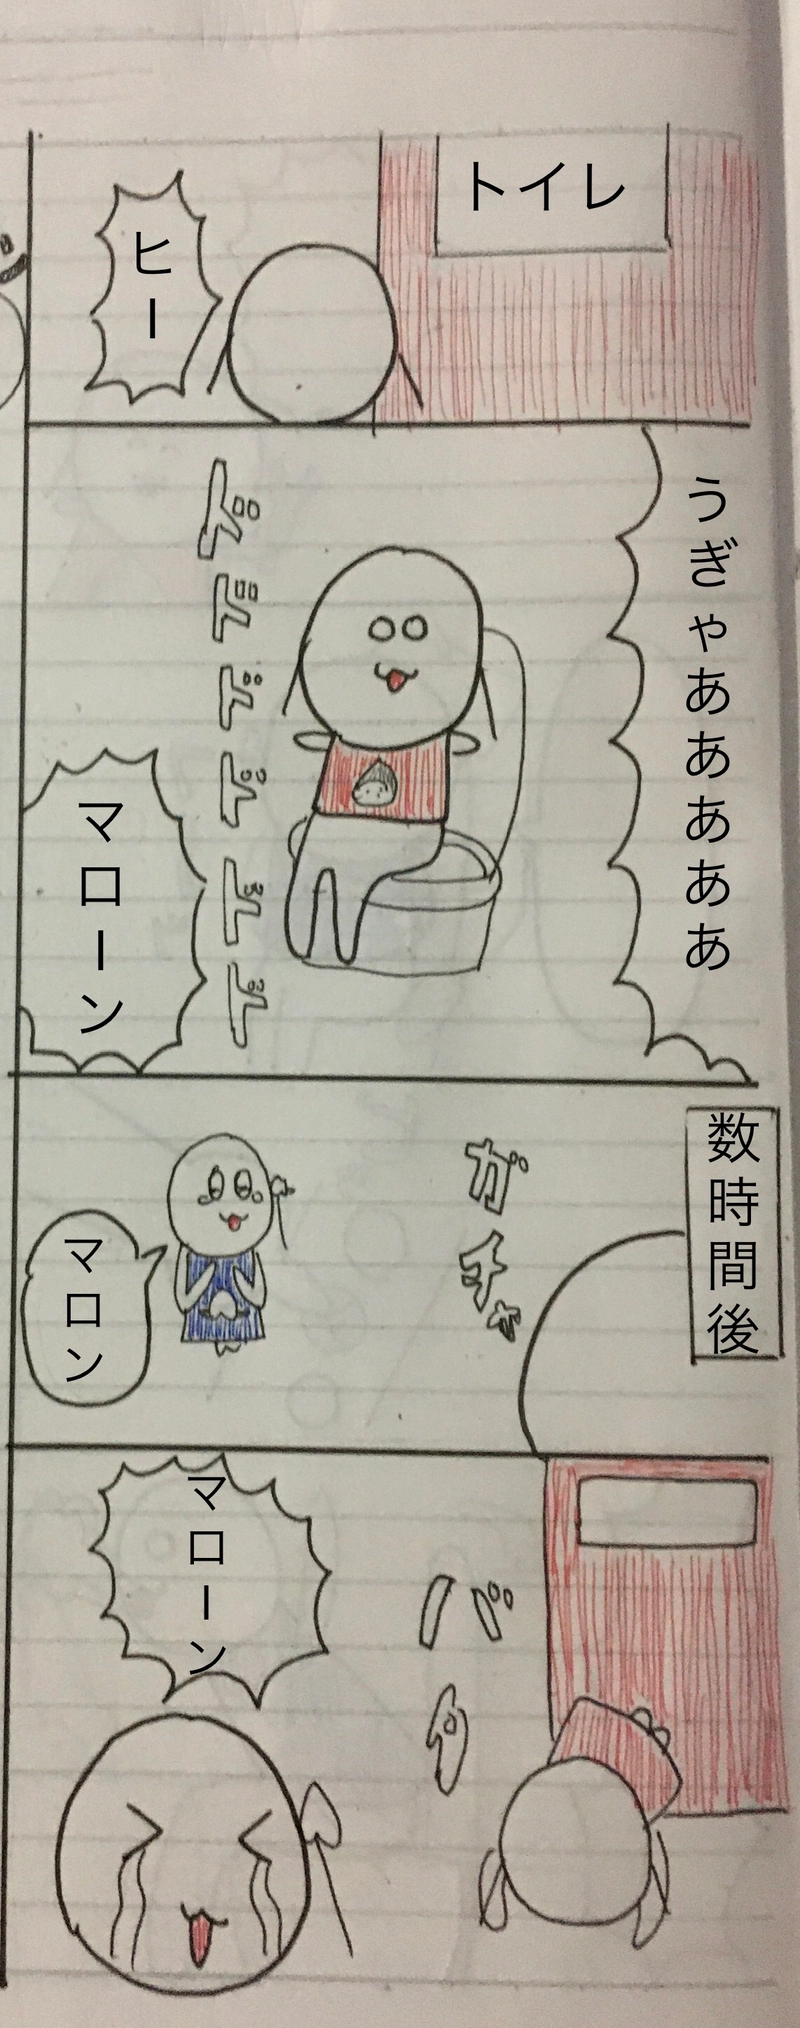 トイレ
ヒー
うぎゃあああああ
マローン
数時間後
ガチャ
マロン
バタ
マローン